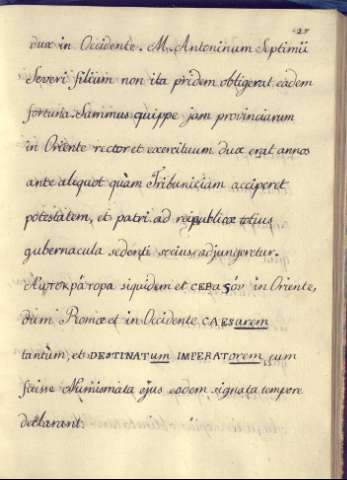 27
dux in Occidente. M. Antoninum Septimii
Severi filium non ita pridem obtigerat eadem
fortuna. Summus quippe jam provinciarum
in Oriente rector et exercituum dux erat annos
ante aliquot quàm Tribuniciam acciperet
potestatem, et patri ad reipublicæ totius
gubernacula sedenti socius adjungeretur.
Αυτοκράτορα siquidem et CEBAϚόν in Oriente,
dum Romæ et in Occidente CAESarem
tantùm, et DESTINATum IMPERATorem, eum
fuisse Numismata ejus eodem signata tempore
declarant.